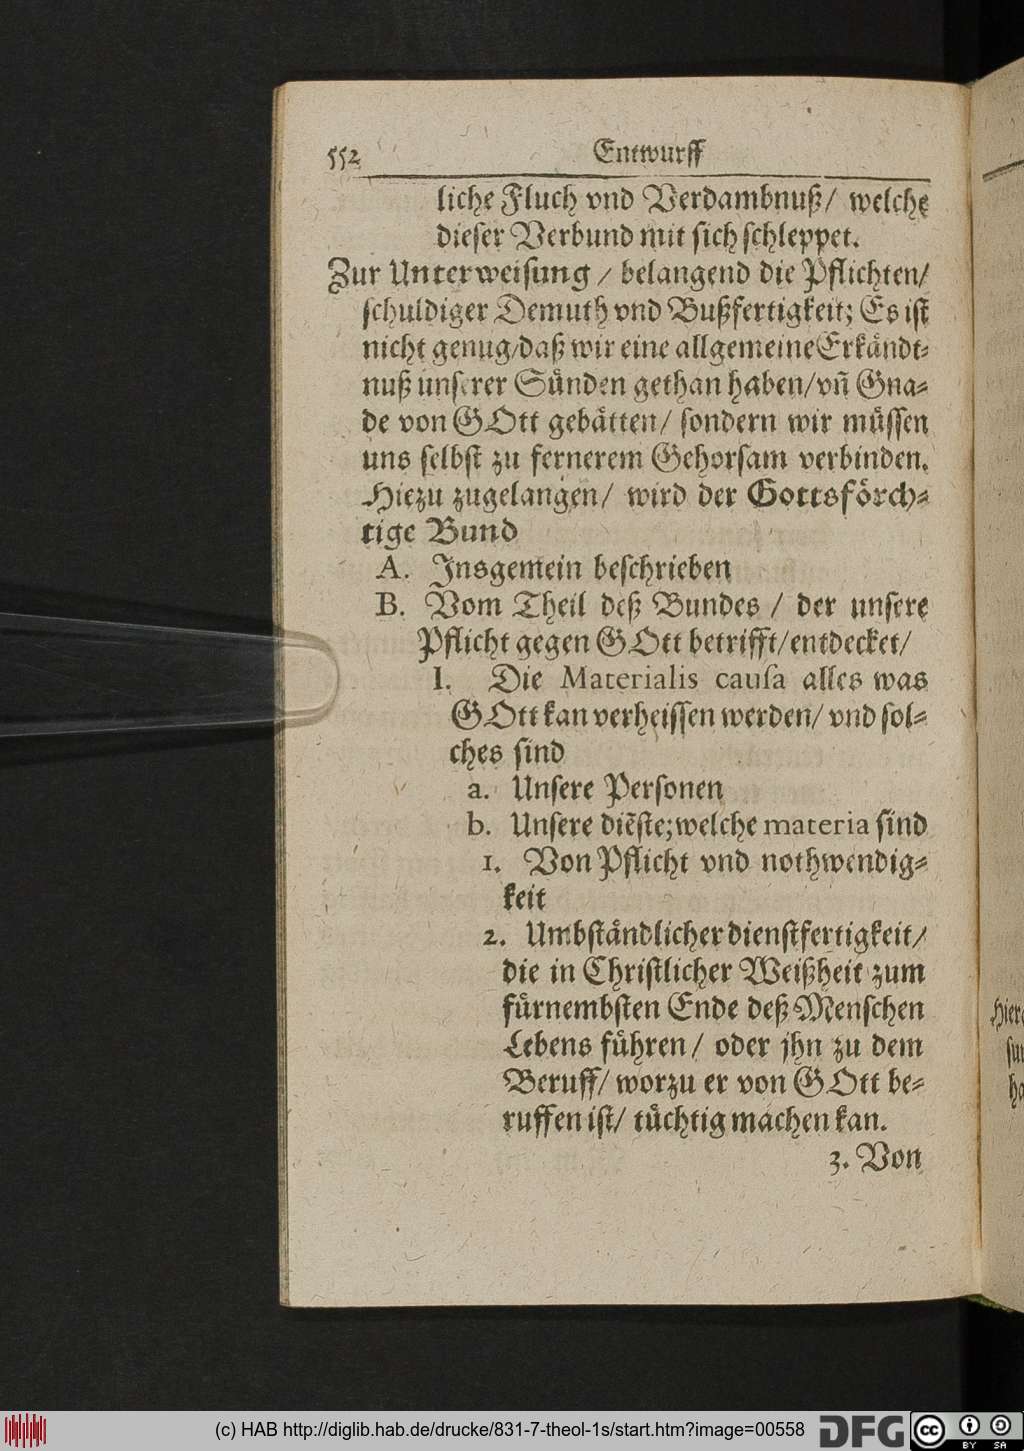 552 Entwurff
liche Fluch vnd Verdambnuß/ welche
dieser Verbund mit sich schleppet.
Zur Unterweisung / belangend die Pflichten/
schuldiger Demuth vnd Bußfertigkeit; Es ist
nicht genug/daß wir eine allgemeine Erkändt⸗
nuß unserer Sünden gethan haben/vñ Gna⸗
de von GOtt gebätten/ sondern wir müssen
uns selbst zu fernerem Gehorsam verbinden.
Hiezu zugelangen/ wird der Gottsförch⸗
tige Bund
A. Insgemein beschrieben
B. Vom Theil deß Bundes / der unsere
Pflicht gegen GOtt betrifft/entdecket/
I. Die Materialis causa alles was
GOtt kan verheissen werden/ vnd sol⸗
ches sind
a. Unsere Personen
b. Unsere diẽste; welche materia sind
1. Von Pflicht vnd nothwendig⸗
keit
2. Umbständlicher dienstfertigkeit/
die in Christlicher Weißheit zum
fürnembsten Ende deß Menschen
Lebens führen/ oder jhn zu dem
Beruff/ worzu er von GOtt be⸗
ruffen ist/ tüchtig machen kan.
3. Von
Hier
su
ha
(c) HAB http://diglib.hab.de/drucke/831-7-theol-1s/start.htm?image=00558
DFG
cc BY SA